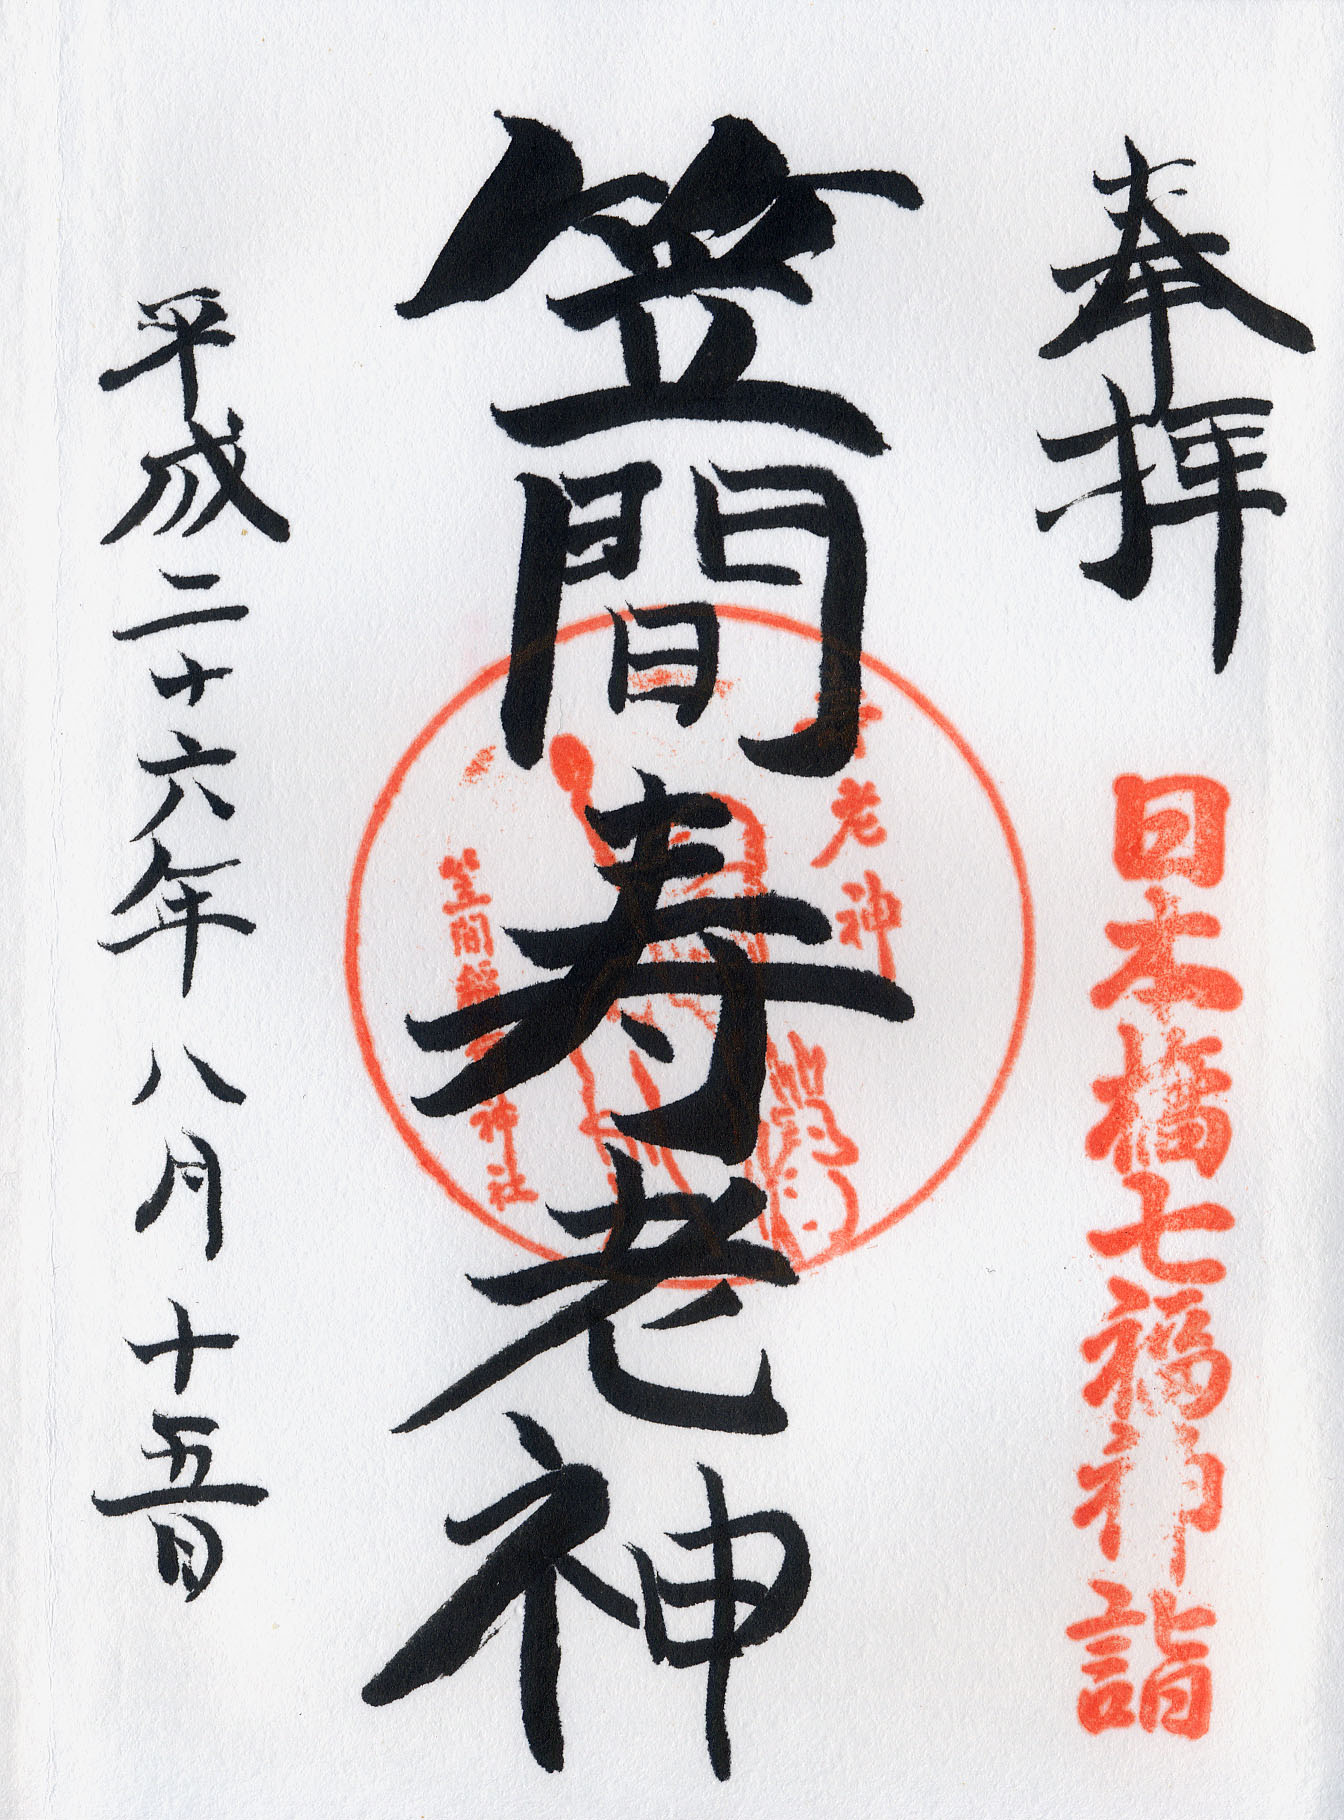 奉拝
日本橋七福神詣
笠間寿老神
寿老神
笠間稲荷神社
平成二十六年八月十五日